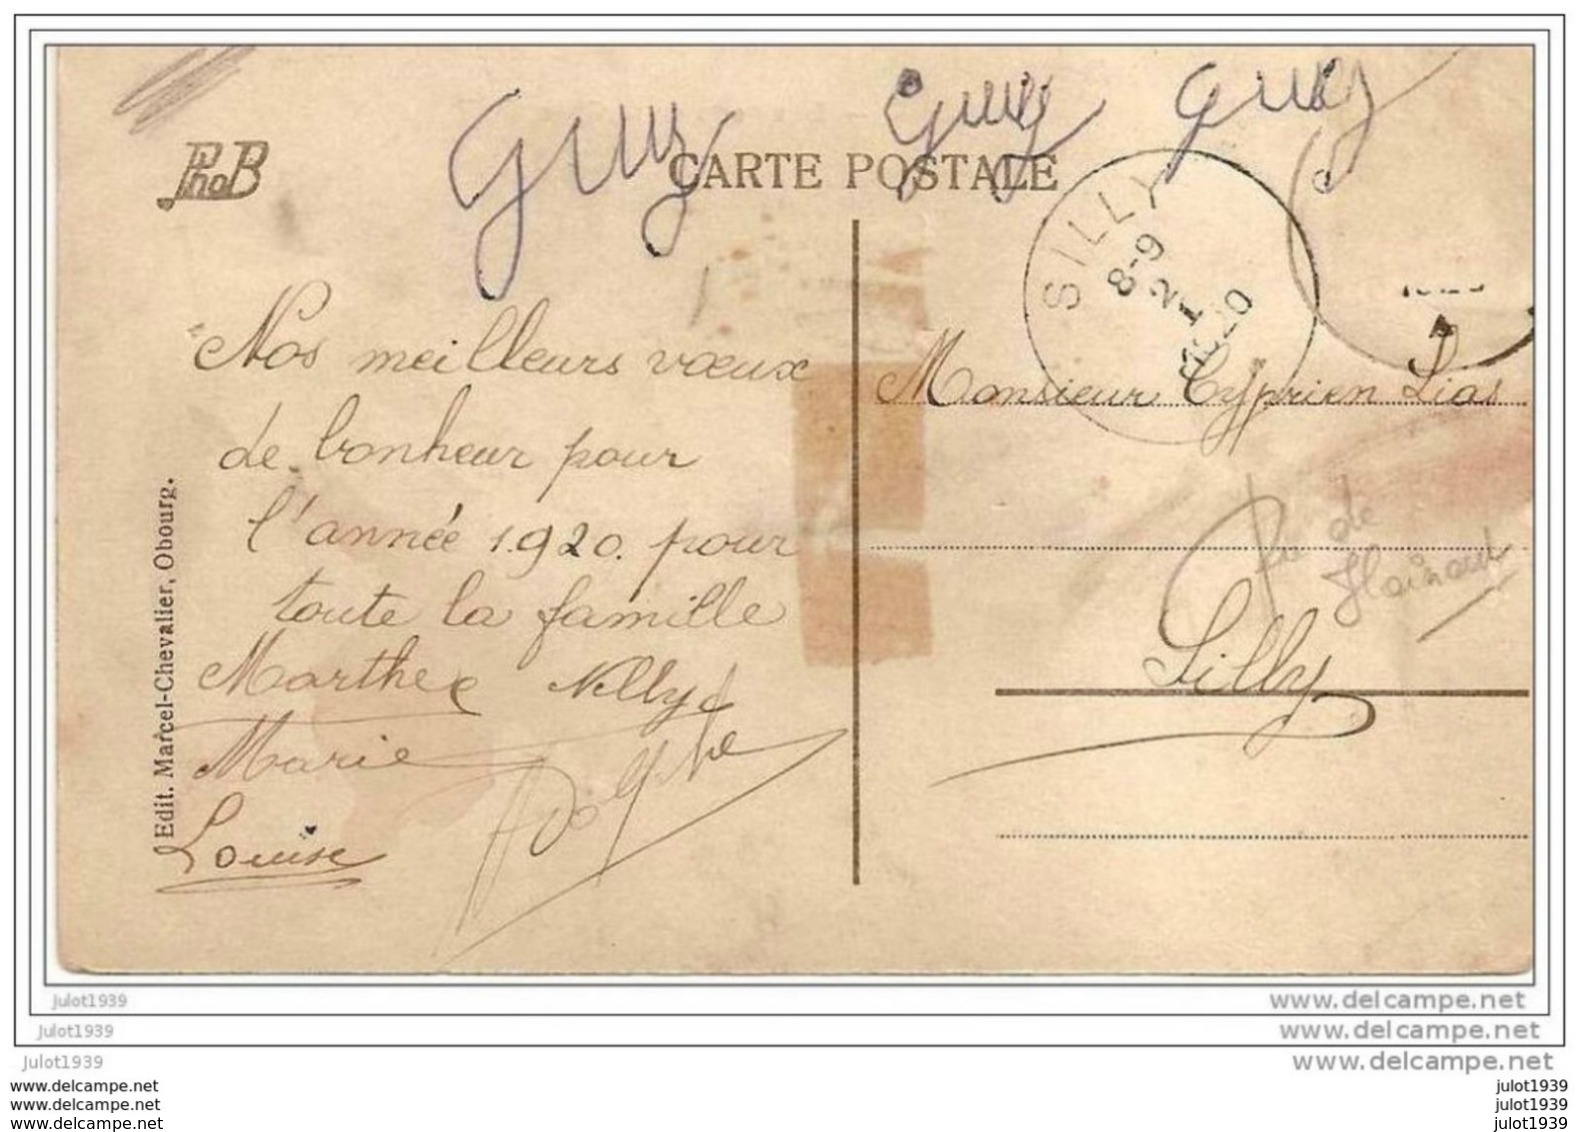 Guy Guy Guy
PhoB
CARTE POSTALE
SILLY
8-9
2 I
1920
Nos meilleurs vœux
de bonheur pour
l'année 1920. pour
toute la famille
Marthe Nelly
Marie Adolphe
Louise
Edit. Marcel-Chevalier, Obourg.
Monsieur Cyprien Lias
de
Hainaut
Silly
julot1939
www.delcampe.net
julot1939
www.delcampe.net
julot1939
www.delcampe.net
www.delcampe.net
julot1939
www.delcampe.net
julot1939
www.delcampe.net
julot1939